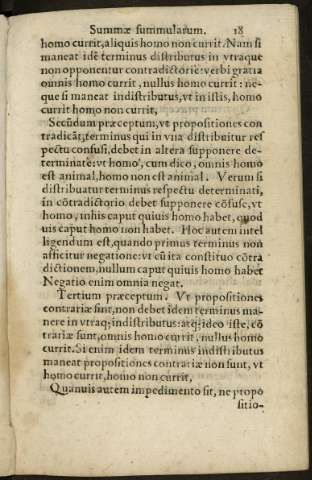 Summæ summularum. 18
homo currit, aliquis homo non currit. Nam si
maneat idē terminus distributus in vtraque
non opponentur contradictoriè: verbi gratia
omnis homo currit, nullus homo currit: ne-
que si maneat indistributus, vt in istis, homo
currit homo non currit,
Secūdum præceptum, vt propositiones con
tradicāt, terminus qui in vna distribuitur res
pectu confusi, debet in altera supponere de-
terminatè: vt homo, cum dico, omnis homo
est animal, homo non est animal. Verum si
distribuatur terminus respectu determinati,
in cōtradictorio debet supponere cōfuse, vt
homo, in his caput quiuis homo habet, quod
uis caput homo non habet. Hoc autem intel
ligendum est, quando primus terminus non
afficitur negatione: vt cū ita constituo cōtra
dictionem, nullum caput quiuis homo habet
Negatio enim omnia negat.
Tertium præceptum. Vt propositiones
contrariæ sint, non debet idem terminus ma-
nere in vtraq; indistributus: atq; ideo istæ, cō
trariæ sunt, omnis homo currit, nullus homo
currit. Si enim idem terminus indistributus
maneat propositiones contrariæ non sunt, vt
homo currit, homo non currit,
Quanuis autem impedimento sit, ne propo
sitio-